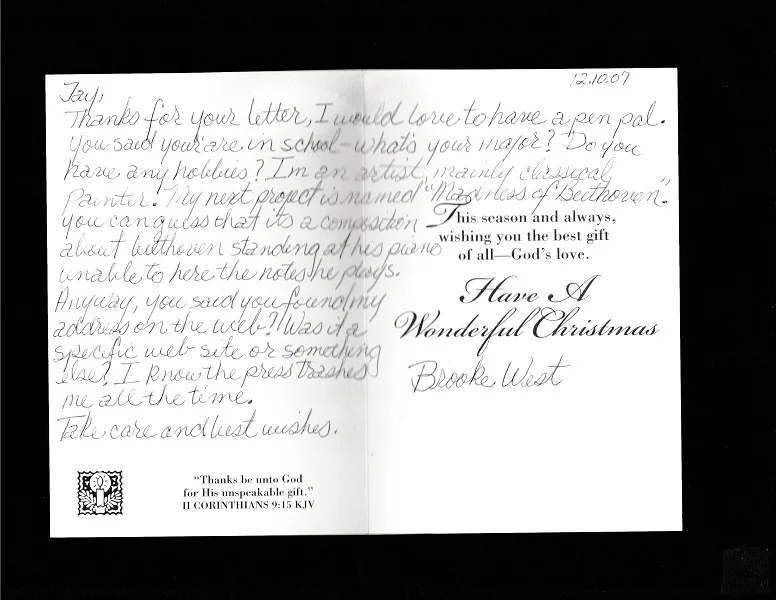 12.10.07
Jay,
Thanks for your letter, I would love to have a pen pal.
You said your are in school - what's your major? Do you
have any hobbies? I'm an artist, mainly classical
painter. My next project is named "Madness of Beethoven".
you can guess that its a composition
about beethoven standing at his piano
unable to here the notes he plays.
Anyway, you said you found my
address on the web? Was it a
specific web site or something
else? I know the press trashes
me all the time.
Take care and best wishes.
"Thanks be unto God
for His unspeakable gift."
II CORINTHIANS 9:15 KJV
This season and always,
wishing you the best gift
of all—God's love.
Have A
Wonderful Christmas
Brooke West